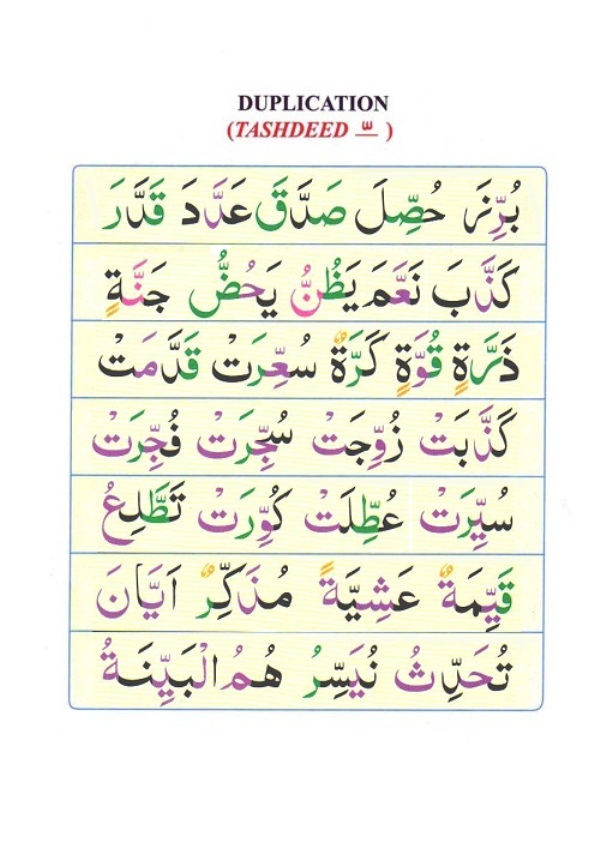 DUPLICATION
(TASHDEED ـّـ )
بُرِّزَ حُصِّلَ صَدَّقَ عَدَّدَ قَدَّرَ
كَذَّبَ نَعَّمَ يَظُنُّ يَحُضُّ جَنَّةٍ
ذَرَّةٍ قُوَّةٍ كَرَّةٌ سُعِّرَتْ قَدَّمَتْ
كَذَّبَتْ زُوِّجَتْ سُجِّرَتْ فُجِّرَتْ
سُيِّرَتْ عُطِّلَتْ كُوِّرَتْ تَطَّلِعُ
قَيِّمَةٌ عَشِيَّةً مُذَكِّرٌ اَيَّانَ
تُحَدِّثُ نُيَسِّرُ هُمُ الْبَيِّنَةُ